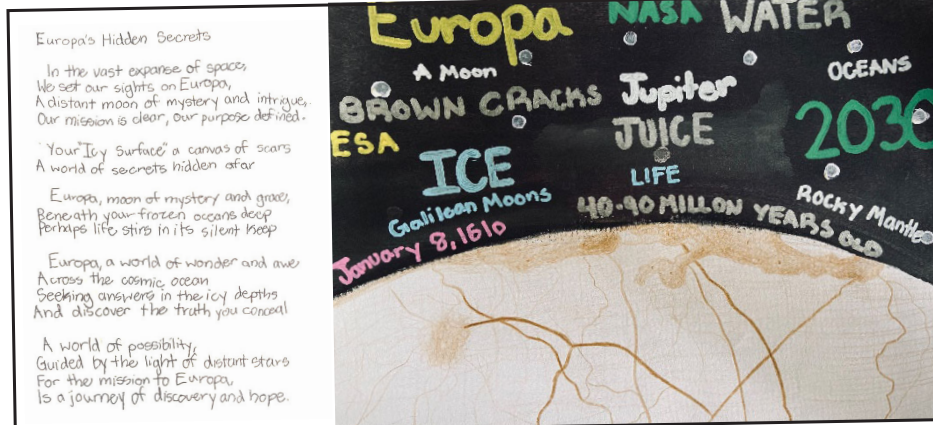 Europa's Hidden Secrets
In the vast expanse of space,
We set our sights on Europa,
A distant moon of mystery and intrigue,
Our mission is clear, our purpose defined.
"Your "Icy Surface" a canvas of scars
A world of secrets hidden afar
Europa, moon of mystery and grace,
Beneath your frozen oceans deep
Perhaps life stirs in its silent keep
Europa, a world of wonder and awe
Across the cosmic ocean
Seeking answers in the icy depths
And discover the truth you conceal
A world of possibility,
Guided by the light of distant stars
For the mission to Europa,
Is a journey of discovery and hope.
Europa
NASA
WATER
A Moon
OCEANS
BROWN CRACKS
Jupiter
2030
ESA
JUICE
ICE
LIFE
Galilean Moons
ROCKY Mantle
40-90 MILLON YEARS OLD
January 8, 1610